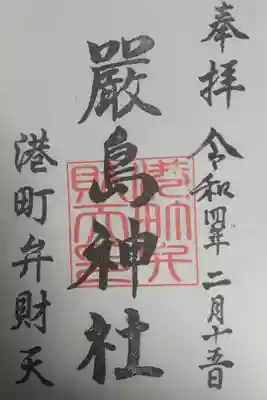 奉拝
令和四年 二月十五日
嚴島神社
港町弁財天